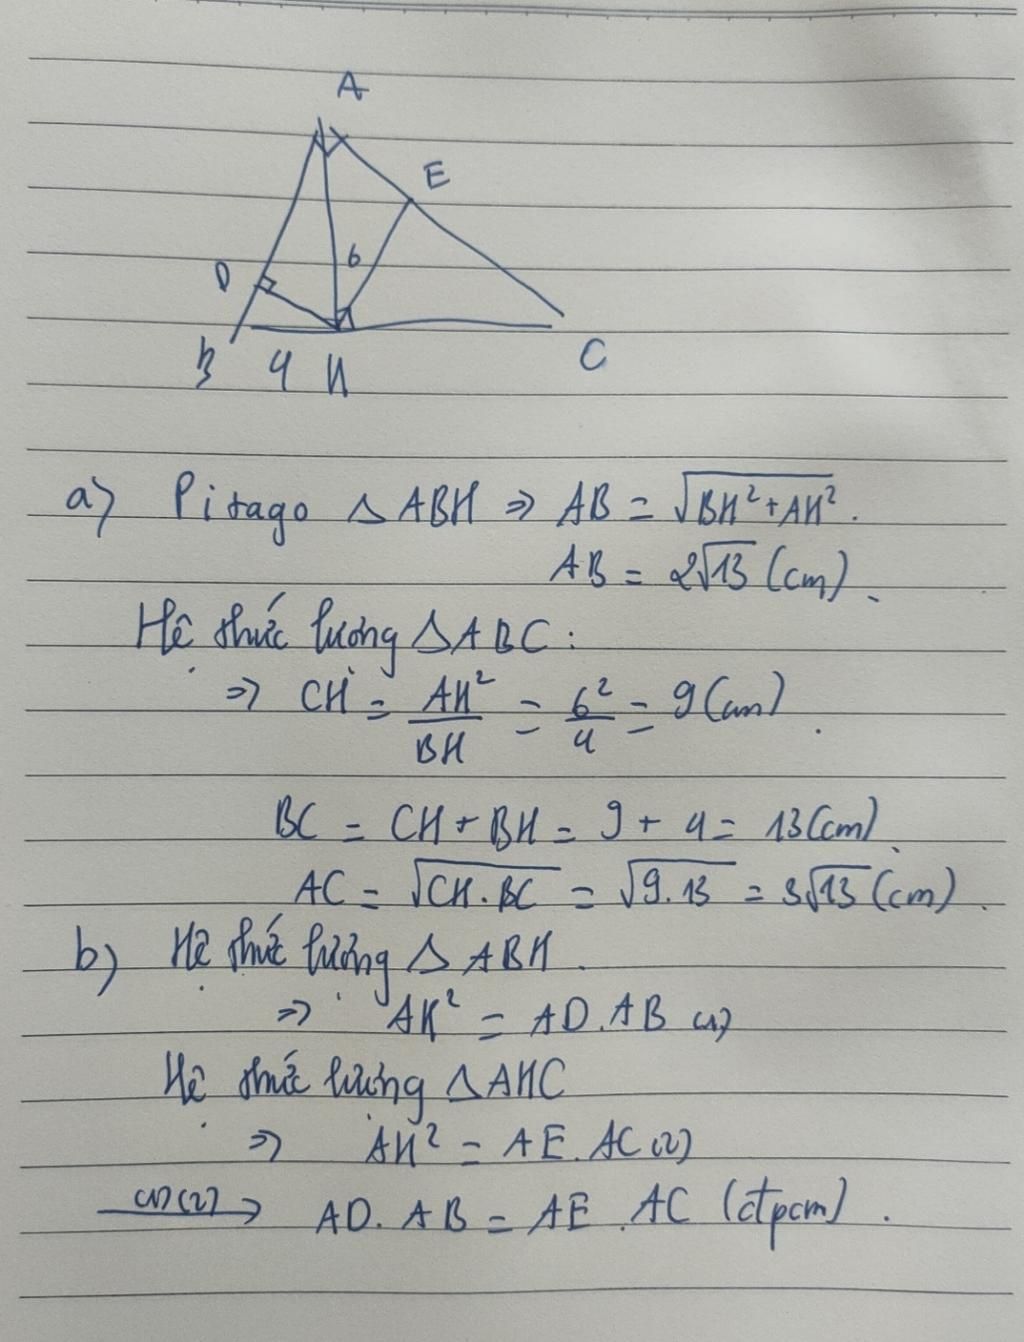 A
E
D
6
B 4 H
C
a) Pitago Δ ABH ⇒ AB = √BH² + AH².
AB = 2√13 (cm).
Hệ thức lượng ΔABC:
⇒ CH = AH²/BH = 6²/4 = 9 (cm).
BC = CH + BH = 9 + 4 = 13 (cm).
AC = √CH.BC = √9.13 = 3√13 (cm).
b) Hệ thức lượng Δ ABH.
⇒ AH² = AD.AB (1)
Hệ thức lượng ΔAHC
⇒ AH² = AE.AC (2)
(1)(2) → AD.AB = AE.AC (đtpcm).